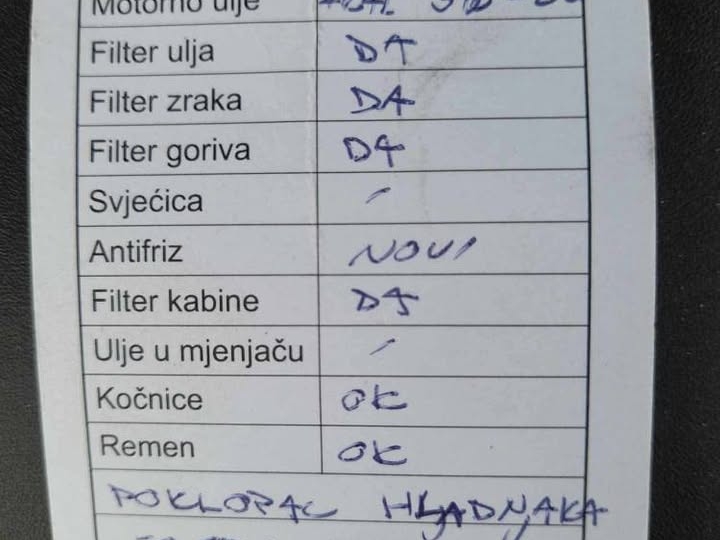 Motorno ulje
Filter ulja DA
Filter zraka DA
Filter goriva DA
Svjećica /
Antifriz NOVI
Filter kabine DA
Ulje u mjenjaču /
Kočnice OK
Remen OK
POKLOPAC HLADNJAKA